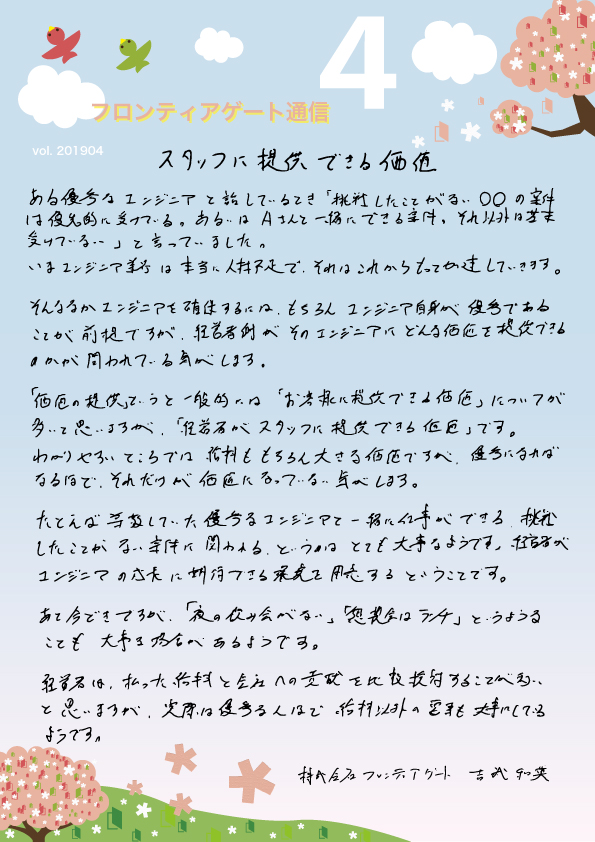 4
フロンティアゲート通信
vol. 201904
スタッフに提供できる価値
ある優秀なエンジニアと話しているとき「挑戦したことがない〇〇の案件
は優先的に受けている。あるいはAさんと一緒にできる案件、それ以外は基本
受けていない」と言っていました。
いまエンジニア業界は本当に人材不足で、それはこれからもっと加速していきます。
そんななかエンジニアを確保するには、もちろんエンジニア自身が優秀である
ことが前提ですが、経営者側がそのエンジニアにどんな価値を提供できる
のかが問われている気がします。
「価値の提供」でいうと一般的には「お客様に提供できる価値」についてが
多いと思いますが、「経営者がスタッフに提供できる価値」です。
わかりやすいところでは給料ももちろん大きな価値ですが、優秀になれば
なるほど、それだけが価値になっていない気がします。
たとえば尊敬していた優秀なエンジニアと一緒に仕事ができる、挑戦
したことがない案件に関われる、というのはとても大事なようです。経営者が
エンジニアの成長に期待できる環境を用意するということです。
あと今どきですが、「夜の飲み会がない」「懇親会はランチ」というような
ことも大事な場合があるようです。
経営者は、払った給料と会社への貢献を比較検討することが多い
と思いますが、実際は優秀な人ほど給料以外の要素も大事にしている
ようです。
株式会社フロンティアゲート 吉武和英